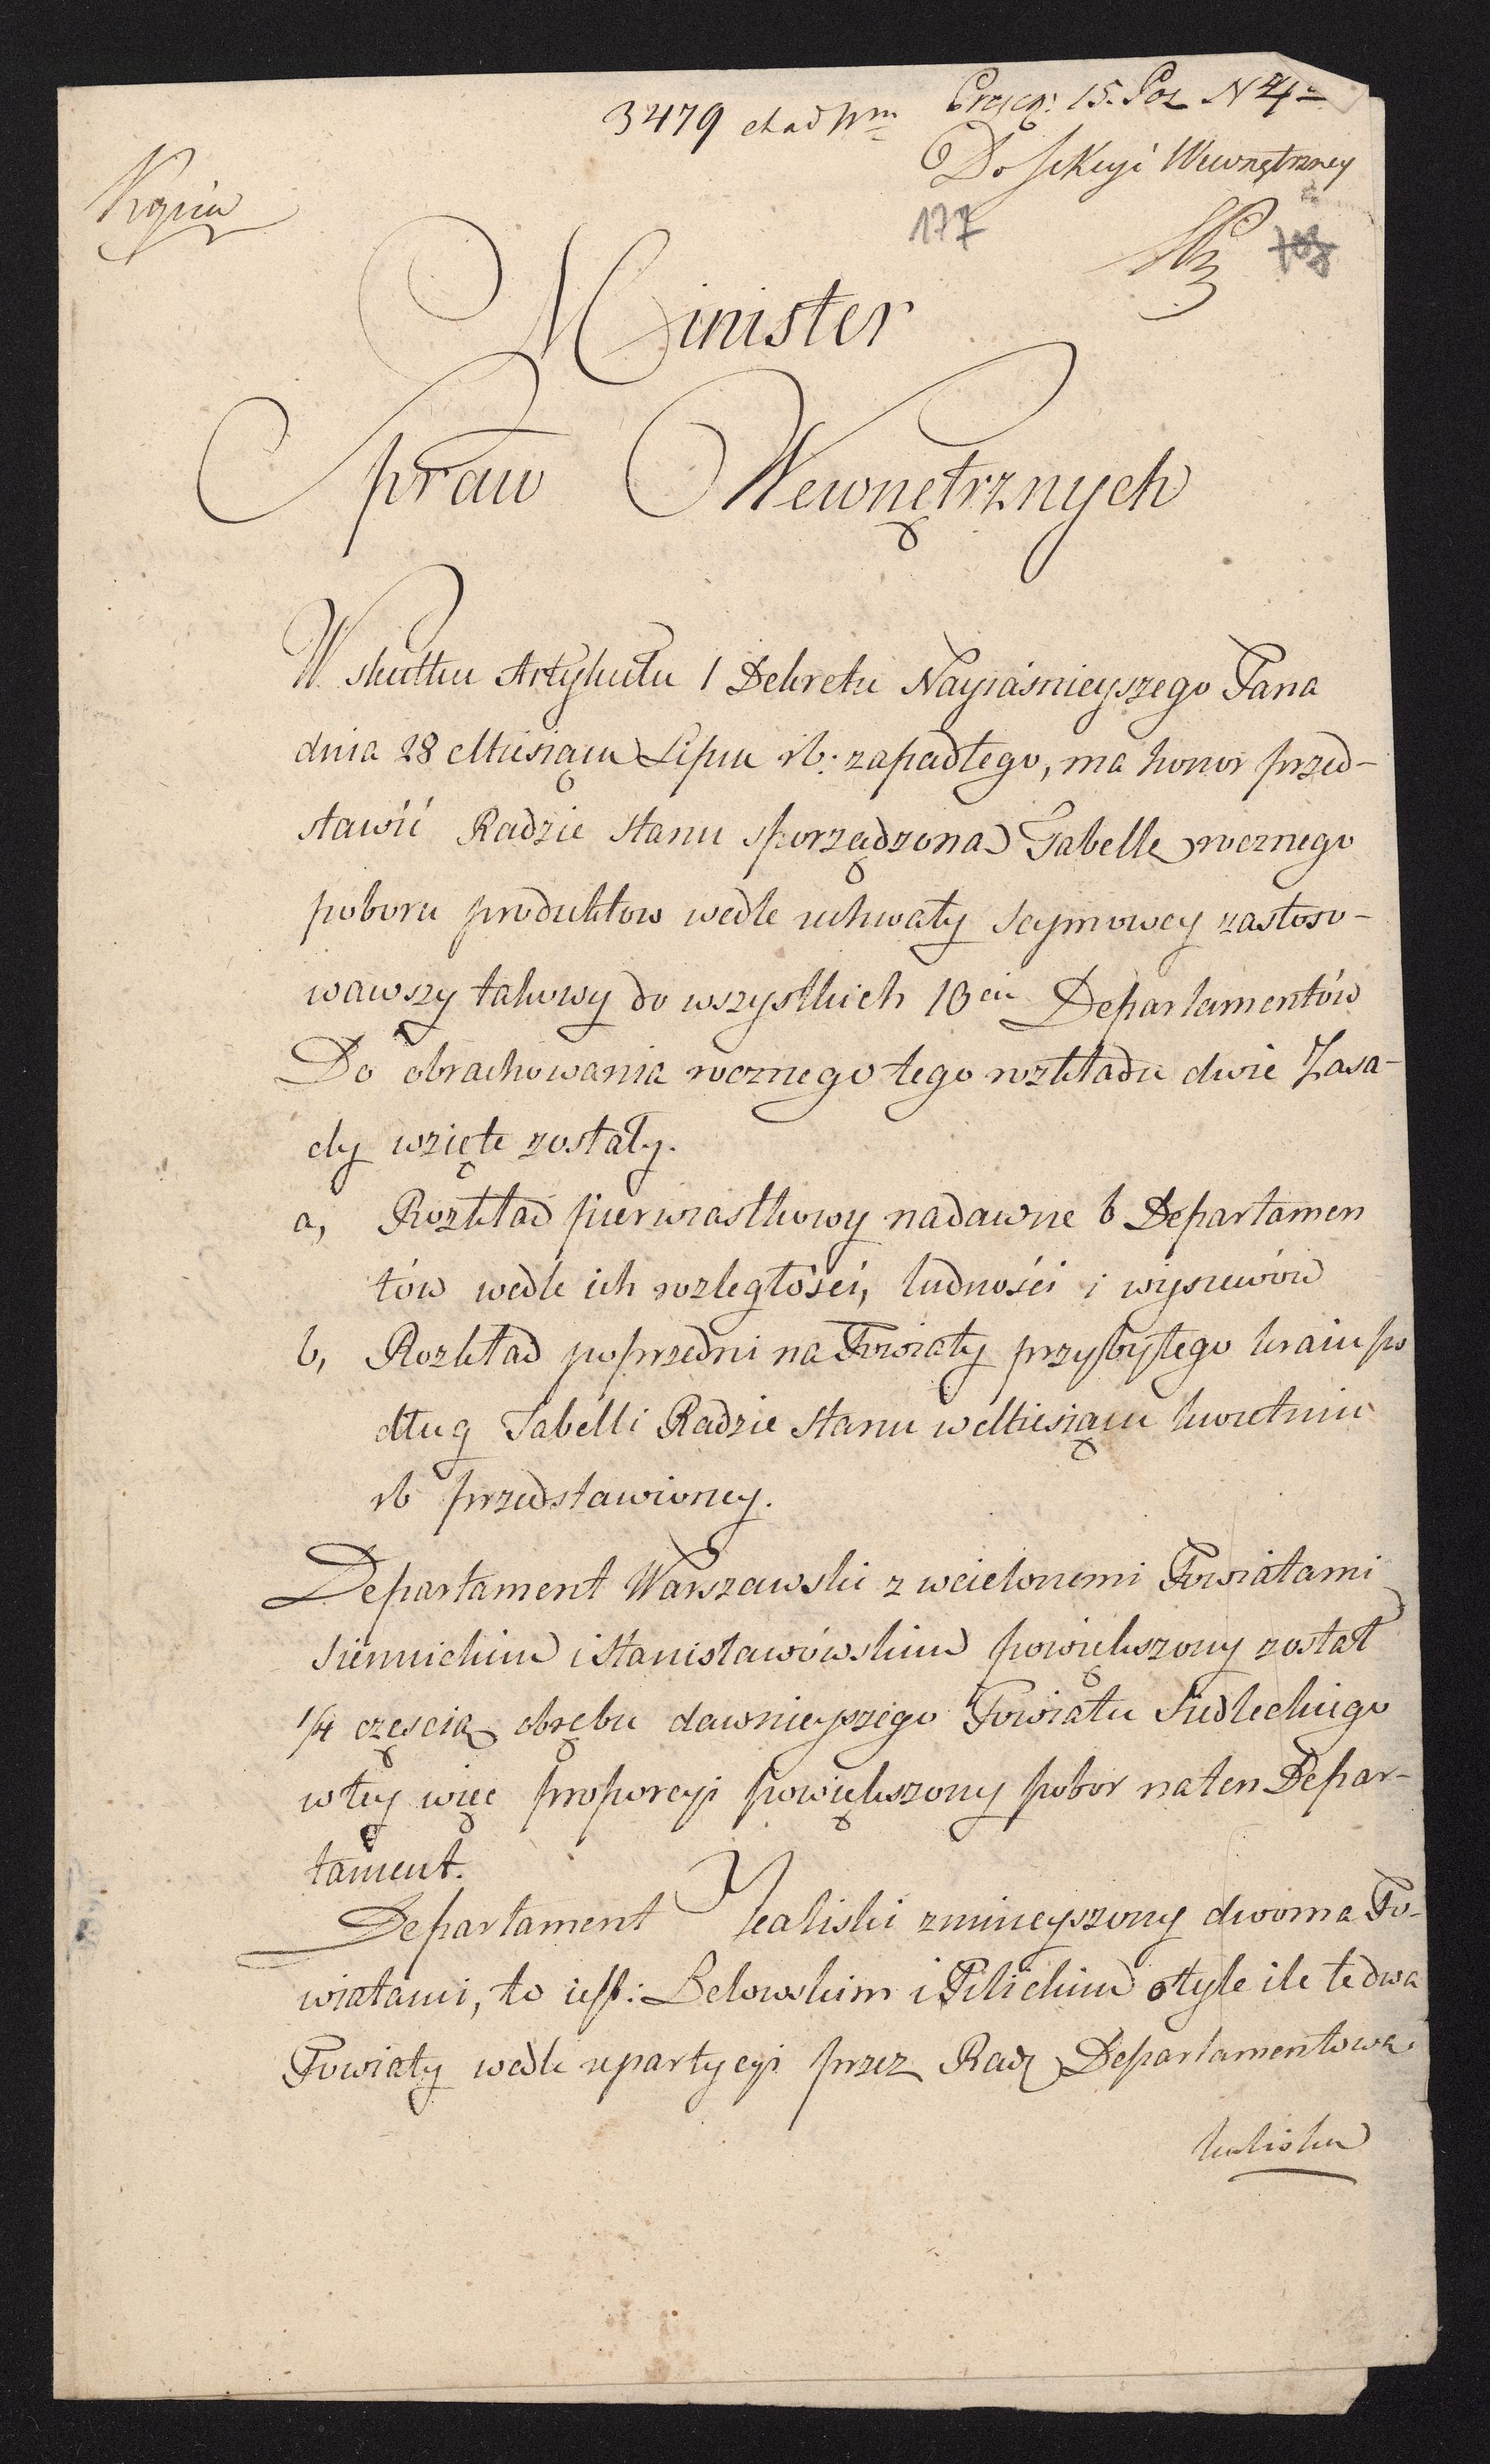 3479 et ad Nm Przycz: 15. Poz N 4
Do Sekcyi Wewnętrzney
Kopia
177
Minister
Spraw Wewnętrznych
W skutku Artykułu 1 Dekretu Nayiaśnieyszego Pana
dnia 28 Miesiąca Lipca rb: zapadłego, ma honor przed-
stawić Radzie Stanu sporządzoną Tabellę rocznego
poboru produktow wedle uchwały Seymowey zastoso-
wawszy takowy do wszystkich 10ciu Departamentów
Do obrachowania rocznego tego rozkładu dwie Zasa-
dy wzięte zostały.
a, Rozkład pierwiastkowy na dawne 6 Departamen
tów wedle ich rozległości, ludności i wysiewów
b, Rozkład poprzedni na Powiaty przybyłego kraiu po
dług Tabelli Radzie Stanu w Miesiącu kwietniu
rb przedstawioney.
Departament Warszawski z wcielonemi Powiatami
Siennickim i Stanisławówskim powiększony został
1/4 częscią obrębu dawnieyszego Powiatu Siedleckiego
w tey więc proporcyi powiększony pobor na ten Depar-
tament.
Departament Kaliski zmnieyszony dwoma Po-
wiatami, to iest: Lelowskim i Pilickim o tyle ile te dwa
Powiaty wedle repartycyi przez Radę Departamentową
kaliską